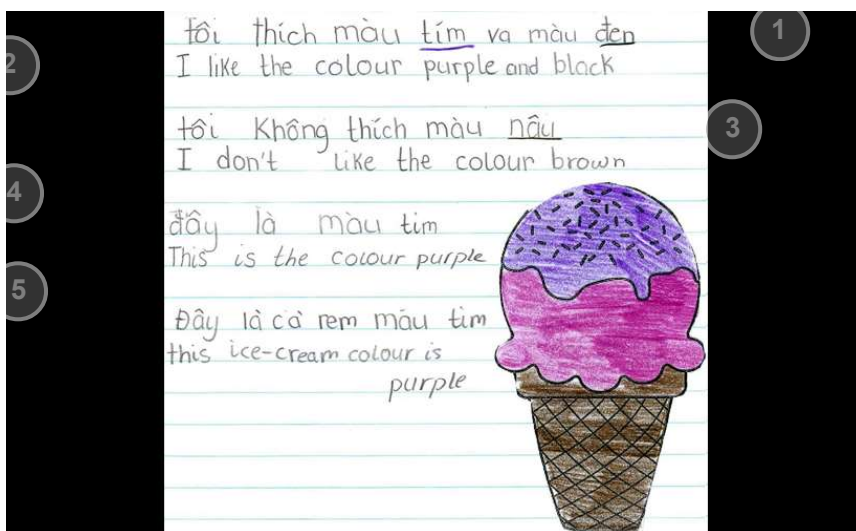 tôi thích màu tím va màu đen
I like the colour purple and black
tôi Không thích màu nâu
I don't like the colour brown
đây là màu tim
This is the colour purple
Đây là cà rem màu tìm
this ice-cream colour is
purple
1
2
3
4
5